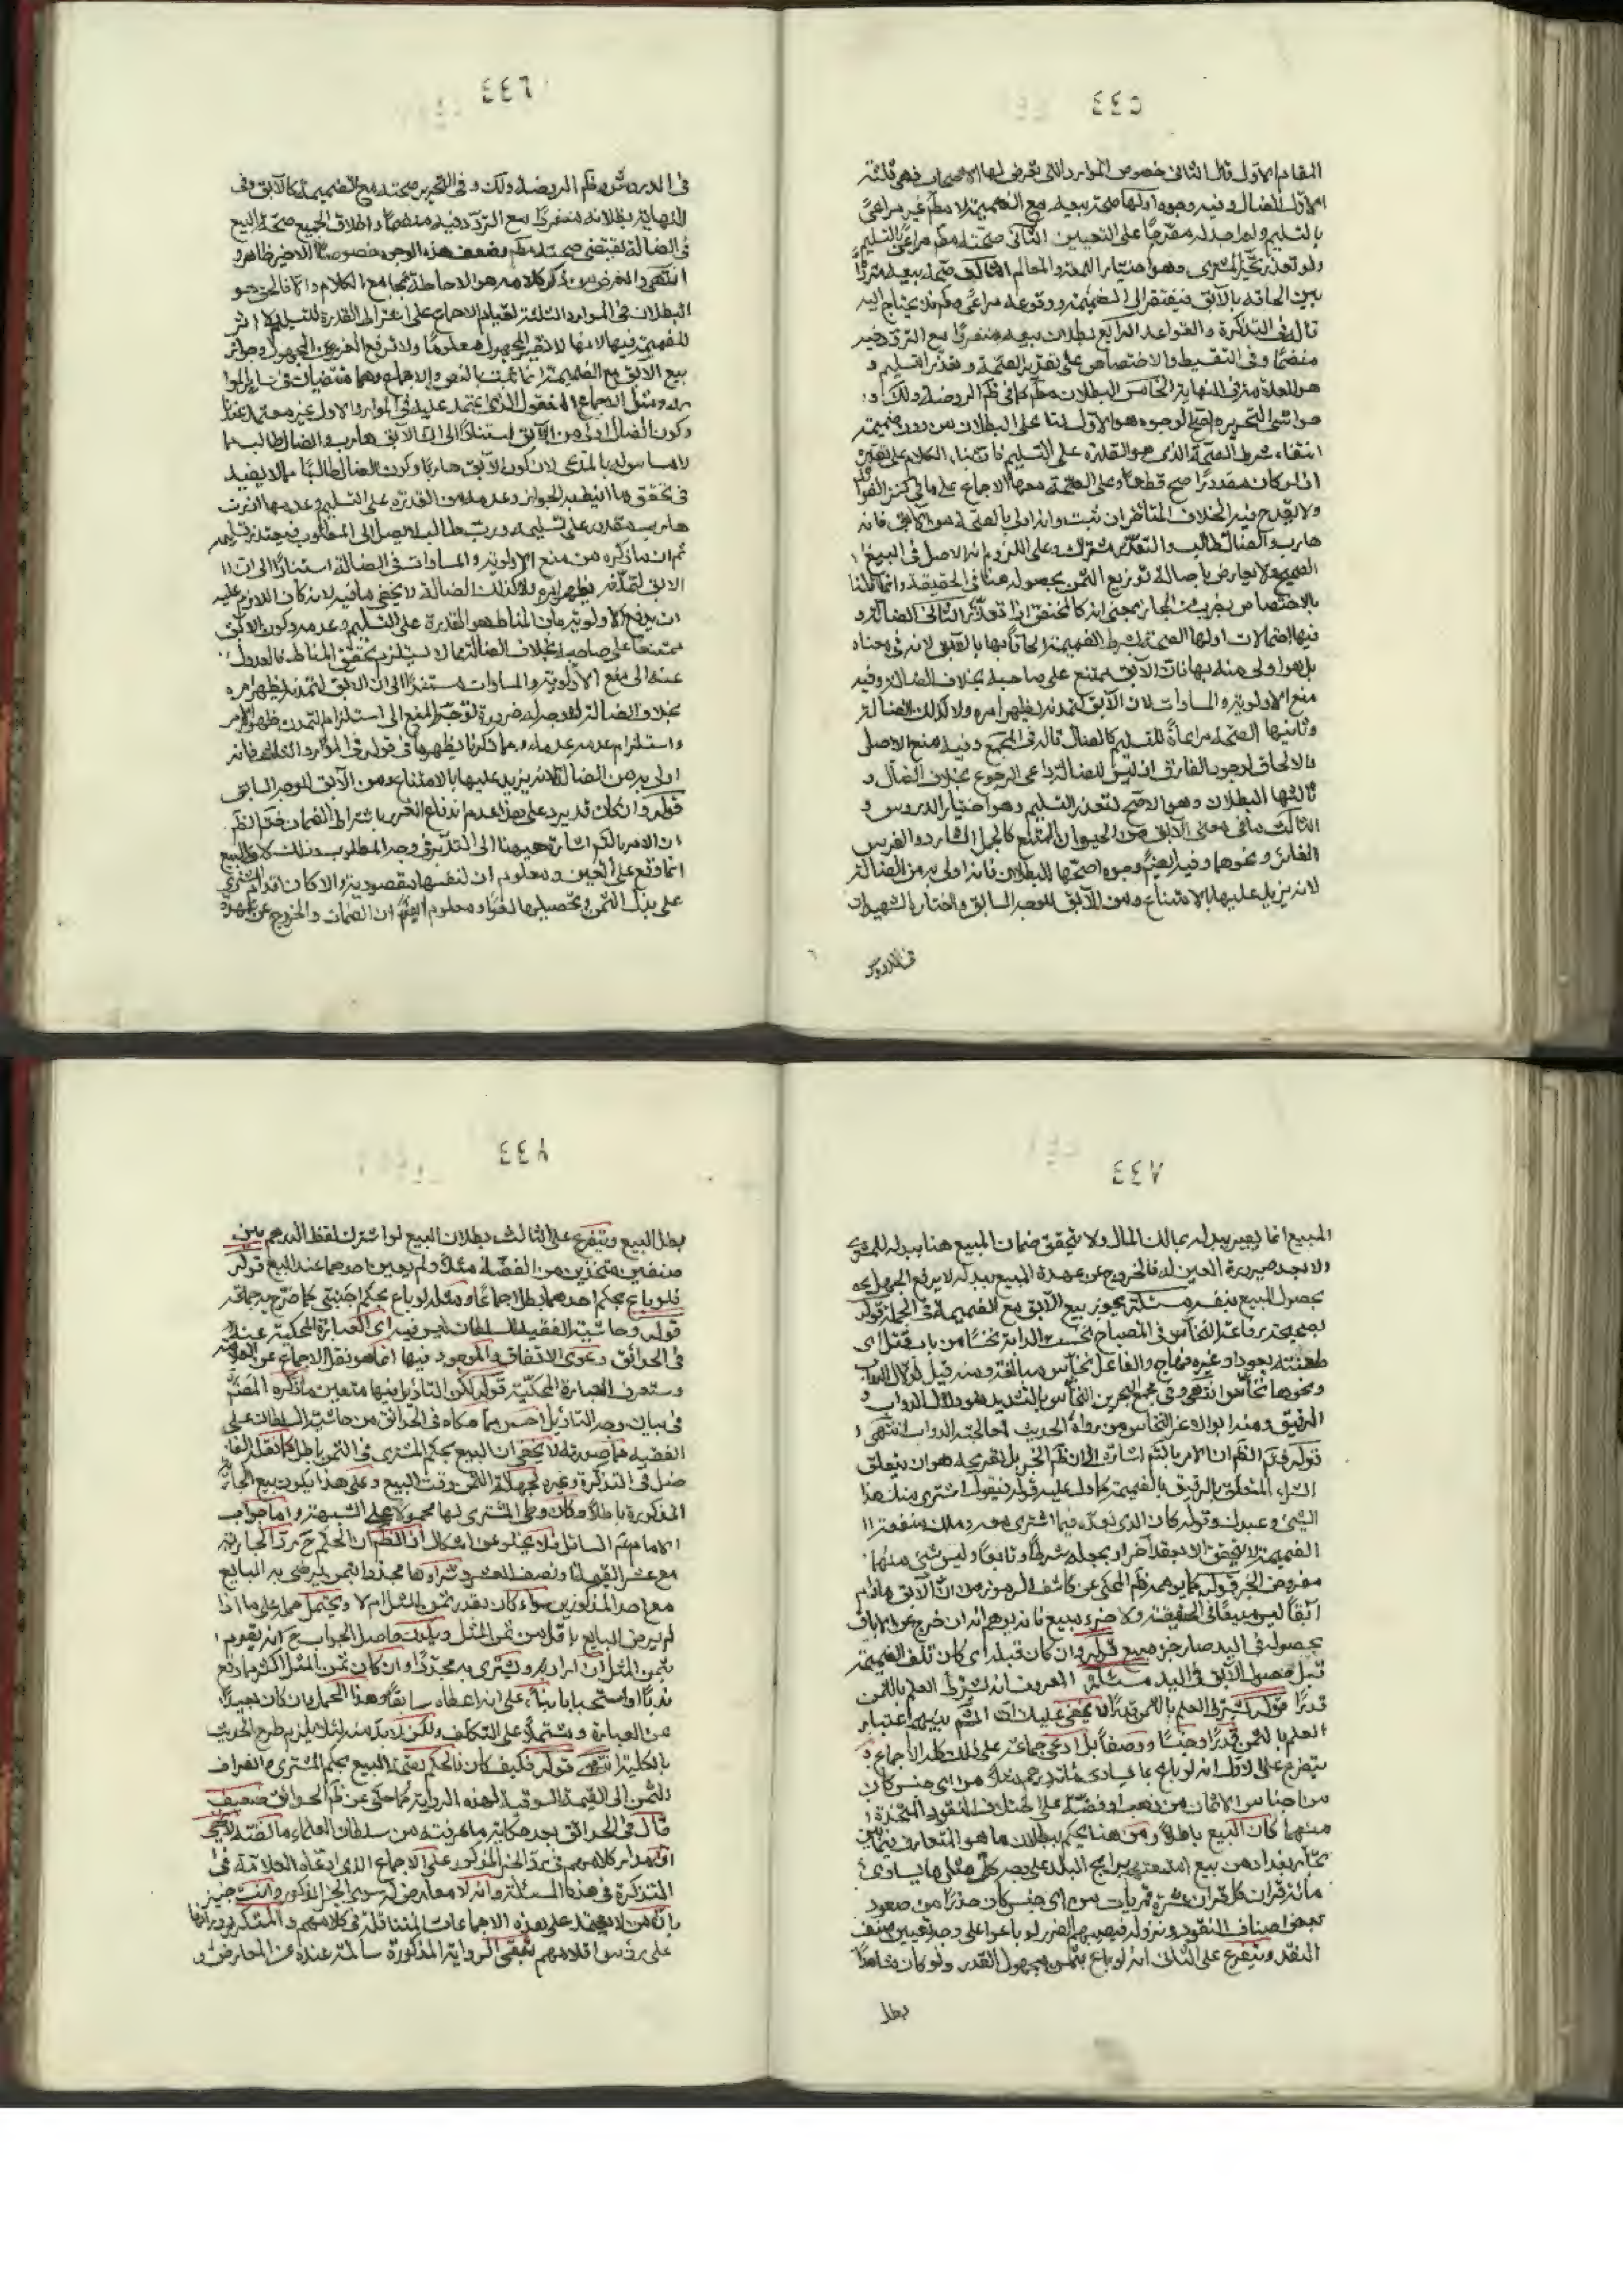 ٤٤٥
المقام الاول قال الثاني خصوص الموارد التي تعرض لها الاصحاب فهي ثلثة
الاول الضال وفيه وجوه اولها صحة بيعه مع الضميمة لا مطم غير مراعى
بالتسليم ولم اجد له مصرحا على التعيين الثاني صحته مطم مراعى بالتسليم
ولو تعذر تخير المشتري وهو اختيار اللمعة والمعالم الثالث صحة بيعه مترددا
بين الحاقه بالآبق فيفتقر الى الضميمة ووقوعه مراعى ومطم فلا يحتاج اليه
قاله في التذكرة والقواعد الرابع بطلان بيعه منفردا مع التردد فيه
منضما وفي التقسيط والاختصاص على تقدير الصحة وتعذر التسليم و
هو للعلامة في النهاية الخامس البطلان مطم كما في ظم الروضة ولك و
حواشي التحرير واصح الوجوه هو الاول لنا على البطلان من دون ضميمة
انتفاء شرط الصحة الذي هو القدرة على التسليم
هارب والضال طالب والتعذر مشترك وعلى اللزوم انه الاصل في البيع
فيها احتمالات اولها الصحة بشرط الضميمة الحاقا بها بالآبق لانه في معناه
بل هو اولى منه بها فان الآبق يمتنع على صاحبه بخلاف الضالة وفيه
منع الاولوية والمساوات لان الآبق لتمدنه يظهر امره ولا كذلك الضالة
وثانيها الصحة مراعاة للتسليم كالضال قاله في المجمع وفيه منع الاصل
والالحاق لوجود الفارق اذ ليس للضالة داعي الرجوع بخلاف الضال و
ثالثها البطلان وهو الاصح لتعذر التسليم وهو اختيار الدروس و
الثالث ما في معنى الآبق من الحيوان الممتنع كالجمل الشارد والفرس
الغائر ونحوهما وفيه ايضا وجوه اصحها البطلان فانه اولى به من الضالة
لانه يزيد عليها بالامتناع ومن الآبق للوجه السابق واختار الشهيدان
في الدروس
٤٤٦
في الدروس وظم الروضة ولك وفي التحرير صحته مع الضميمة كالآبق وفي
النهاية بطلانه منفردا مع التردد فيه منضما واطلاق الجميع صحة البيع
في الضالة يقتضي صحته مطم وضعف هذه الوجوه خصوصا الاخير ظاهر
انتهى والغرض من ذكر كلامه هو الاحاطة بمجامع الكلام والا فالحق هو
البطلان في الموارد الثلثة لقيام الاجماع على اشتراط القدرة للتسليم ولا اثر
للضميمة فيها لانها لا تصير المجهول معلوما ولا ترفع الغرر عن المجهول وجواز
بيع الآبق مع الضميمة انما ثبت بالنص والاجماع وهما منتفيان في سائر الموارد
وكون الضال اولى من الآبق استنادا الى ان الآبق هارب والضال طالب مما
لا مساس له بالمدعى لان كون الآبق هاربا وكون الضال طالبا مما لا يفيد
في تحقق مااانيط به الجواز وعدمه من القدرة على التسليم وعدمها اذ رب
هارب يقدر على تسليمه ورب طالب لا يصل الى المطلوب فيتعذر تسليمه
ثم ان ما ذكره من منع الاولوية والمساوات في الضالة استنادا الى ان
الآبق لتمدنه يظهر امره ولا كذلك الضالة لا يخفى ما فيه لانه كان اللازم عليه
ان يدفع الاولوية بان المناط هو القدرة على التسليم وعدمه وكون الآبق
ممتنعا على صاحبه بخلاف الضالة مما لا يستلزم تحقق المناط فالعدول
عنه الى منع الاولوية والمساوات مستندا الى ان الآبق لتمدنه يظهر امره
بخلاف الضالة لا وجه له ضرورة توجه المنع الى استلزام التمدن ظهور الامر
واستلزام عدمه عدمه ومما ذكرنا يظهر ما في قوله في المورد الثالث فانه
اولى به من الضالة لانه يزيد عليها بالامتناع ومن الآبق للوجه السابق
قوله وان كان قد يرد على هذا عدم اندفاع الغرر باشتراط الضمان فتم الظم
ان الامر بالتم اشارة هيهنا الى التدبر في وجه المطلوب وذلك لان البيع
انما وقع على العين ومعلوم ان لنفسها مقصودية والا كان اقدام المشتري
على بذل الثمن وتحصيلها لغوا ومعلوم ايضا ان الضمان والخروج عن عهدة
٤٤٧
المبيع انما يصير ببدله بمالك المال ولا يتحقق ضمان المبيع هنا ببدله للمشتري
الا بعد صيرورة العين له فالخروج عن عهدة المبيع ببدله لا يرفع الجهل به
بحصول المبيع بنفسه مسئلة يجوز بيع الآبق مع الضميمة في الجملة قوله
بصحيحة رفاعة النخاس في المصباح نخست الدابة نخسا من باب قتل اي
طعنته بعود او غيره فهاج والفاعل نخاس مبالغة ومنه قيل لدلال الدواب
ونحوها نخاس انتهى وفي مجمع البحرين النخاس بالتشديد هو دلال الدواب و
الرقيق ومنه ابو الاغر النخاس من رواة الحديث لمعالجته الدواب انتهى
قوله فتم الظم ان الامر بالتم اشارة الى ان ظم الخبر بل تصريحه هو ان يتعلق
الشراء المتعلق بالرقيق بالضميمة كما دل عليه قوله فيقول اشتري منك هذا
الشيء وعبدك وقوله كان الذي نقده فيما اشترى معه وملك منفعة
الضميمة لا يتحقق الا بعقد آخر او بجعله شرطا وتابعا وليس شيء منهما
مفروض الخبر قوله كما يوهمه ظم المحكي عن كاشف الرموز من ان الآبق ما دام
آبقا ليس مبيعا في الحقيقة ولا جزء مبيع فانه يوهم انه ان خرج عن الاباق
بحصوله في اليد صار جزء مبيع قوله وان كان قبله اي كان تلف الضميمة
قبل حصول الآبق في اليد مسئلة المعروف انه يشترط العلم بالثمن
قدرا قوله يشترط العلم بالثمن قدرا لا يخفى عليك ان المشهور بينهم اعتبار
العلم بالثمن قدرا وجنسا ووصفا بل ادعى جماعة على ذلك كله الاجماع و
يتفرع على الاول انه لو باع بما يساوي مائة درهم مثلا من اي جنس كان
من اجناس الاثمان من ذهب او فضة على اختلاف النقود المتخذة
منهما كان البيع باطلا ومن هنا يحكم ببطلان ما هو المتعارف فيما بين
تجار بغداد من بيع امتعتهم برايج البلد
مائة قران كل قران عشرة قمريات من اي جنس كان حذرا من صعود
بعض اصناف النقود ونزوله فيصيبهم الضرر لو باعوا على وجه تعيين صنف
النقد ويتفرع على الثاني انه لو باع بثمن مجهول القدر ولو كان مشاهدا
بطل
٤٤٨
بطل البيع ويتفرع على الثالث بطلان البيع لو اشترك لفظ الدرهم بين
صنفين متخذين من الفضة مثلا ولم يعين احدهما عند البيع قوله
فلو باع بحكم احدهما بطل اجماعا ومثله لو باع بحكم اجنبي كما صرح به جماعة
قوله وحاشية الفقيه للسلطان ليس فيه اي العبارة المحكية عنه
في الحدائق دعوى الاتفاق والموجود فيها انما هو نقل الاجماع عن العلامة
وستعرف العبارة المحكية قوله لكن التأويل فيها متعين ما ذكره المصنف
في بيان وجه التأويل احسن مما حكاه في الحدائق من حاشية السلطان على
الفقيه مما صورته لا يخفى ان البيع بحكم المشتري في الثمن باطل كما نقل الفا
ضل في التذكرة وغيره لجهالة الثمن وقت البيع وعلى هذا يكون بيع الجارية
المذكورة باطلا وكان وطي المشتري لها محمولا على الشبهة واما جواب
الامام ع السائل فلا يخلو عن اشكال اذ الظم ان الحكم ح رد الجارية
مع عشر القيمة او نصف العشر وشراؤها مجددا بثمن يرضى به البايع
مع احد المذكورين سواء كان بقدر ثمن المثل ام لا ويحتمل حمله على ما اذا
لم يرض البايع باقل من ثمن المثل ويكون حاصل الجواب ح انه يقوم
بثمن المثل ان اراد ويشتري به مجددا وان كان ثمن المثل اكثر مما دفع
ندبا او استحبابا بناء على انه اعطاه سابقا وهذا الحمل وان كان بعيدا
عن العبارة ومشتملا على التكلف ولكن لابد منه لئلا يلزم طرح الحديث
بالكلية انتهى قوله فكيف كان فالحكم بصحة البيع بحكم المشتري وانصراف
الثمن الى القيمة السوقية لهذه الرواية كما حكي عن ظم الحدائق ضعيف
قال في الحدائق بعد حكاية ما عرفته من سلطان العلماء ما لفظه لا يخفى
ان مدار كلامهم في رد الخبر المذكور على الاجماع الذي ادعاه العلامة في
التذكرة في هذه المسئلة وانه لا معارض له سوى الخبر المذكور وانت خبير
بان من لا يعتمد على هذه الاجماعات المتناقلة في كلامهم والمتكرر دورانها
على رؤس اقلامهم تبقى الرواية المذكورة سالمة عنده عن المعارض و